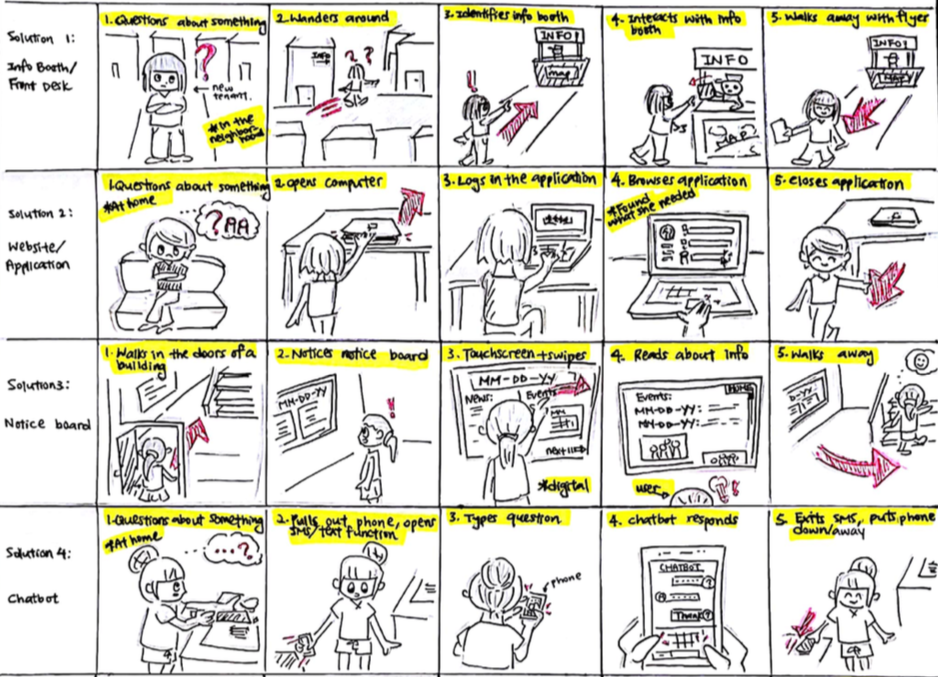 Solution 1:
Info Booth/
Front Desk
1. Questions about something
?
← new
tenant.
*In the
neighbor-
hood
2. Wanders around
INFO
? ?
3. Identifies info booth
INFO!
map
!!
4. Interacts with info
booth
INFO
MAP
5. Walks away with flyer
INFO!
Solution 2:
Website/
Application
1. Questions about something
*At home
?AA
2. Opens computer
3. Logs in the application
4. Browses application
*Found
what she needed
5. Closes application
Solution 3:
Notice board
1. Walks in the doors of a
building
2. Notices notice board
MM-DD-YY
!
3. Touchscreen + swipes
MM-DD-YY
News:
Events
MM
next
*digital
4. Reads about info
HOME
Events:
MM-DD-YY:
MM-DD-YY:
user
!!
5. Walks away
Solution 4:
Chatbot
1. Questions about something
*At home
...?
2. Pulls out phone, opens
SMS/text function
3. Types question
phone
4. Chatbot responds
CHATBOT
?
Thanks
5. Exits SMS, puts phone
down/away